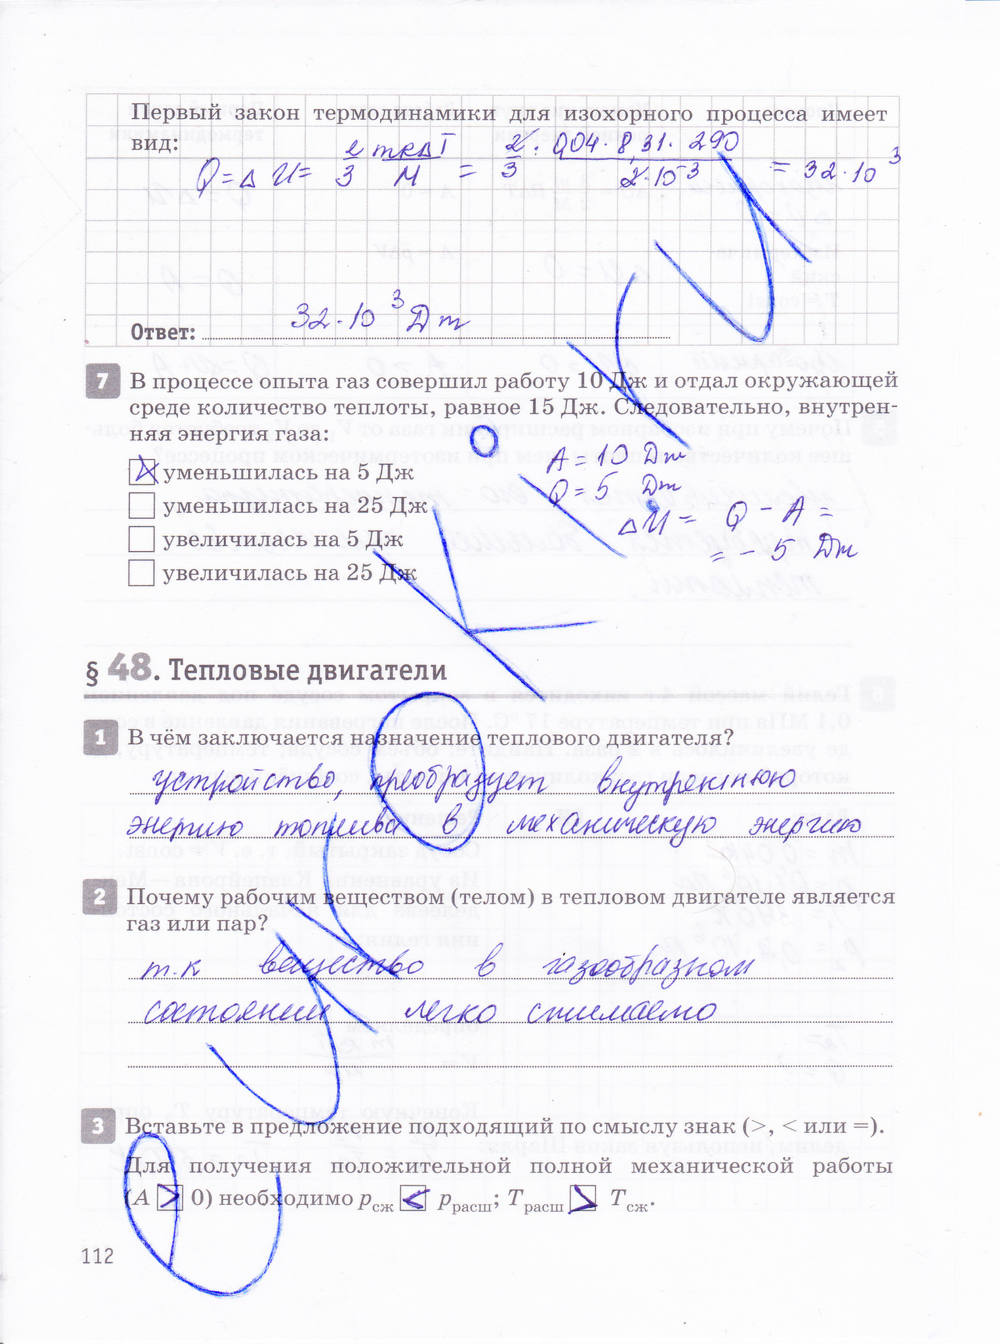 Первый закон термодинамики для изохорного процесса имеет
вид:
Q = Δ U = 2/3 mRΔT/M = 2/3 · 0,04 · 8,31 · 290 / 2·10⁻³ = 32·10³
Ответ: 32·10³ Дж
7 В процессе опыта газ совершил работу 10 Дж и отдал окружающей
среде количество теплоты, равное 15 Дж. Следовательно, внутрен-
няя энергия газа:
уменьшилась на 5 Дж
уменьшилась на 25 Дж
увеличилась на 5 Дж
увеличилась на 25 Дж
A = 10 Дж
Q = 5 Дж
ΔU = Q - A =
= - 5 Дж
§ 48. Тепловые двигатели
1 В чём заключается назначение теплового двигателя?
устройство, преобразует внутреннюю
энергию топлива в механическую энергию
2 Почему рабочим веществом (телом) в тепловом двигателе является
газ или пар?
т.к вещество в газообразном
состоянии легко сжимаемо
3 Вставьте в предложение подходящий по смыслу знак (>, < или =).
Для получения положительной полной механической работы
(A > 0) необходимо pсж < pрасш; Tрасш > Tсж.
112